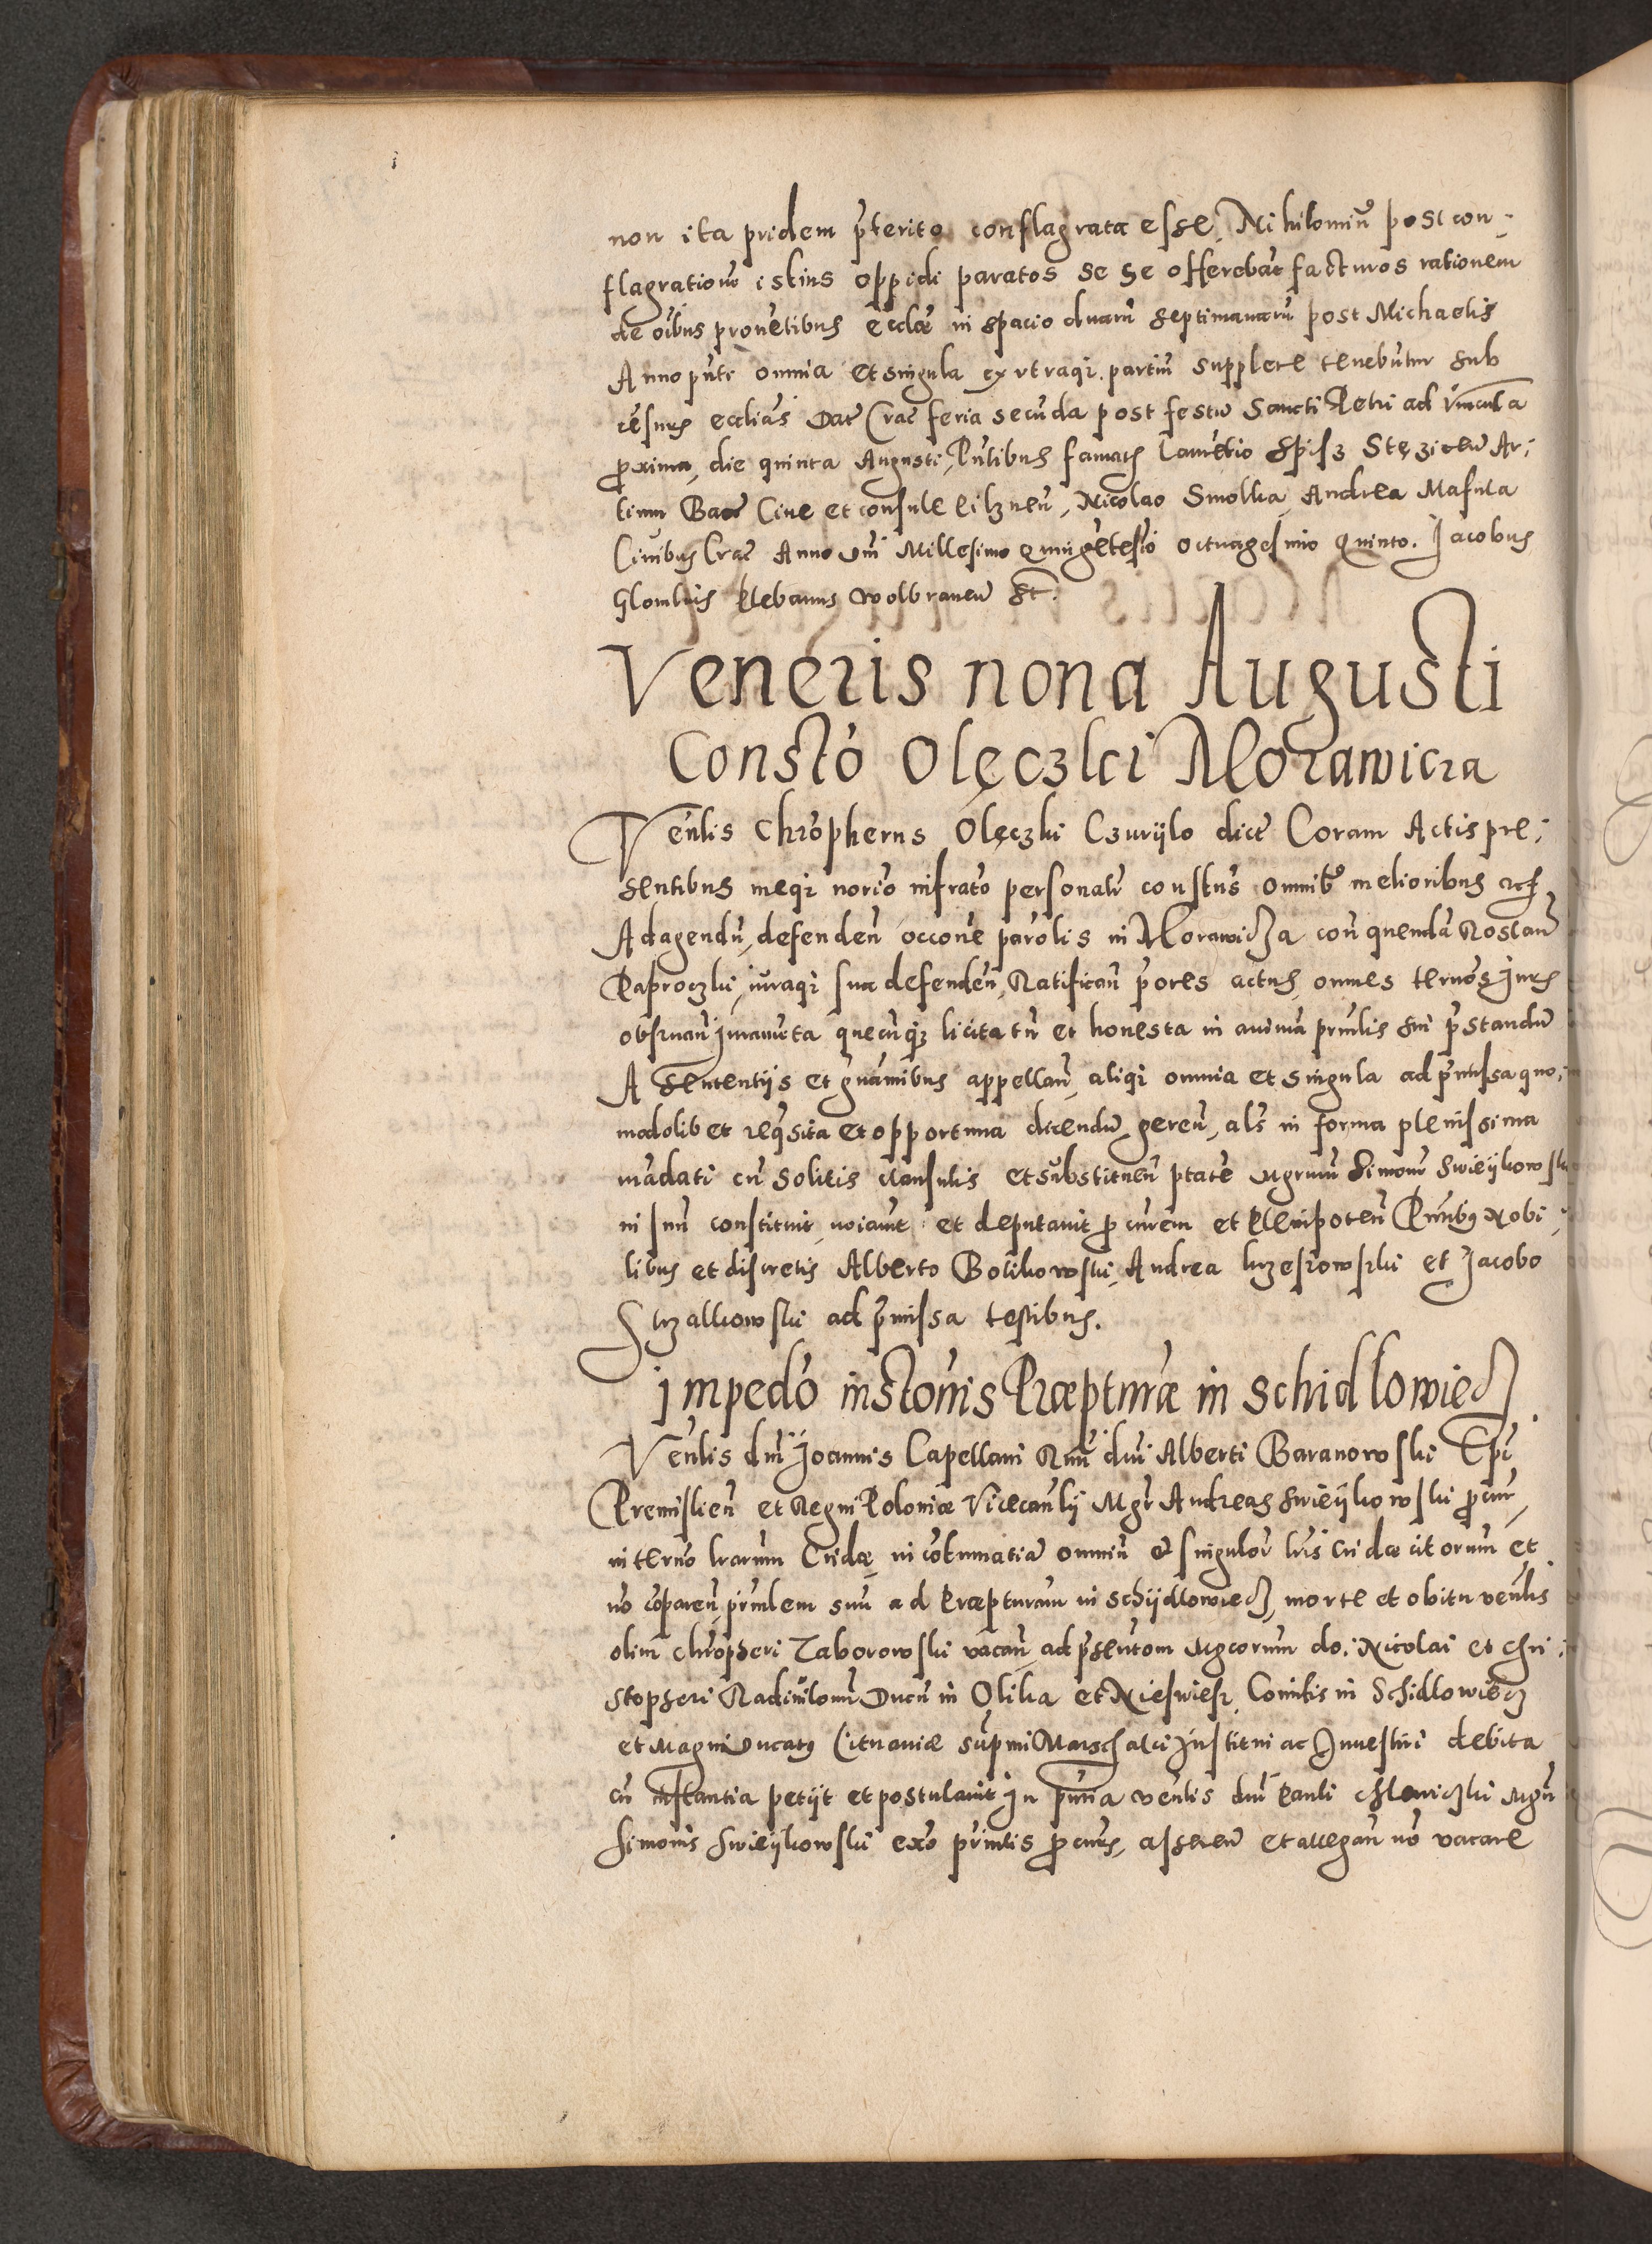 non ita pridem p̄terito conflagrata esse, Nihilomiñ post con-
flagrationē istius oppidi paratos se se offerebāt facturos rationem
de oībus prouētibus eccłæ in spacio duarū septimanarū post Michaelis
Anno pn̄ti omnia et singula ex vtraqȝ partiū supplere tenebūtur sub
cēsuris ecclīas Dat̄ Crac̄ feria secūda post festū Sancti Petri ad vincula
proxima, die quinta Augusti, Pn̄tibus famatis Laurētio Spisz Stęziceū Ar-
tium Bacc̄ Ciue et consule Pilzneñ, Nicolao Smolka, Andrea Masuta
Ciuibus Crac̄ Anno Dn̄i Millesimo Quingētesīo octuagesimo Quinto. Jacobus
Glomluis Plebanus Wolbraneñ sst.
Veneris nona Augusti
Constō Olęczki Morawicza
Venl̄is Chrōpherus Olęczki Czuryło dict̄ Coram Actis pre-
sentibus meqȝ notrīo infratō personalr̄ constūs omnib9 melioribus etc
Ad agendū, defendeñ occōne parōlis in Morawicza con quendā Rostañ
Paproczki, iuraqȝ sua defendeñ, Ratificañ p̄ores actus, omnes ternōs Juris
obseruañ juramēta quecūqȝ licita tn̄ et honesta in animā prn̄lis sui p̄standū
A sententijs et gn̄aminibus appellañ, aliqȝ omnia et singula ad p̄missa quo-
modolibet reqsita et opportuna dicendū, gereñ, als̄ in forma plenissima
mādati cū solitis clausulis et substitueñ ptāte Mgrum Simonē Swieykowski
in suū constituit, noīauit et deputauit procurem et Plenipoteñ Pn̄tib9 Nobi-
libus et discretis Alberto Bolikowski, Andrea krzeszowski et Jacobo
Strzalkowski ad p̄missa testibus.
Impedō instōnis Præpturæ in Schidlowiecz
Venl̄is dn̄i Joannis Capellani Rmi dn̄i Alberti Baranowski Epī
Premislieñ et Regni Poloniæ Vicecanlij Mgr̄ Andreas Swieykowski procur,
in ternō lrarum Cridæ, in cōtumatiā omniū et singulor̄ lris Cridæ citorum et
nō cōpareñ, prn̄lem suū ad Præpturam in Schydlowiecz, morte et obitu venl̄is
olim Chrōpheri Taborowski vacañ, ad p̄sentom Mgcorum do: Nicolai et Chri-
stopheri Radiuilonū Ducū in Olika et Nieswiesz, Comitis in Schidlowiecz
et Magni Ducat9 Lituaniæ sup̄mi Marschalci Institui ac Inuestiri debita
cū instantia petijt et postulauit In pn̄tia venl̄is dn̄i Pauli Chlewiczki Mgri
Simonis Swieykowski exō prin̄tis procuris, assereñ et allegañ nō vacare